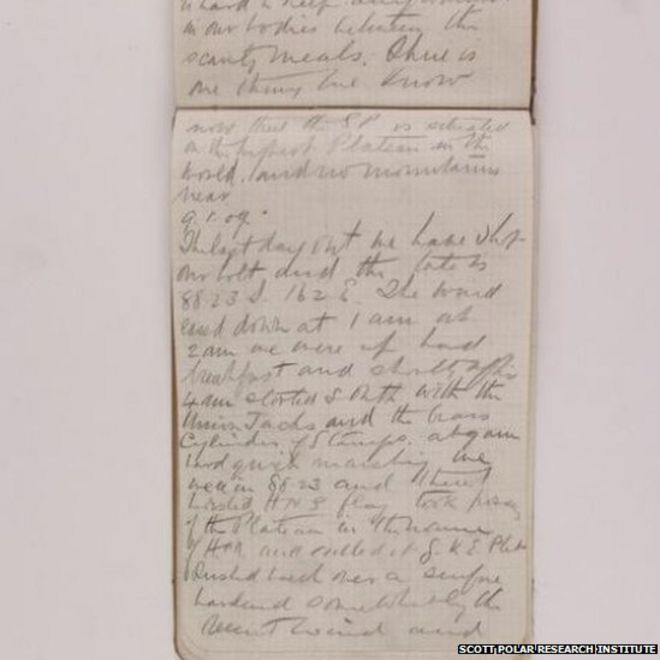 in our bodies between the
scanty meals. There is
one thing we know
now that the S P is situated
on the highest Plateau in the
World. and no mountains
near
9. 1. 09.
The last day out we have shot
our bolt and the tale is
88 23 S. 162 E. The wind
eased down at 1 am at
2 am we were up had
breakfast and shortly after
4 am started South with the
Union Jacks and the brass
Cylinder of Stamps. at 9 am
hard quick marching we
were in 88 23 and there
hoisted H M S flag took
of the Plateau in the name
of H M and called it K E Plat
Rushed back over a surface
hardened somewhat by the
recent wind and
SCOTT POLAR RESEARCH INSTITUTE